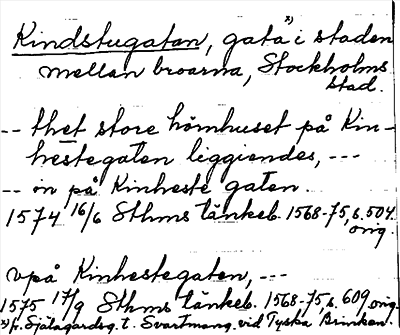 Kindstugatan, gata x) i staden
mellan broarna, Stockholms
stad.
-- thet store hörnhuset på Kin-
hestegaten liggiendes, ---
-- in på Kinheste gaten
1574 16/6 Sthms tänkeb. 1568-75, s. 504.
orig.
vpå Kinhestegaten, ---
1575 17/9 Sthms tänkeb. 1568-75, s. 609, orig.
x) fr. Själagårdsg. t. Svartmang. vid Tyska Brinken.